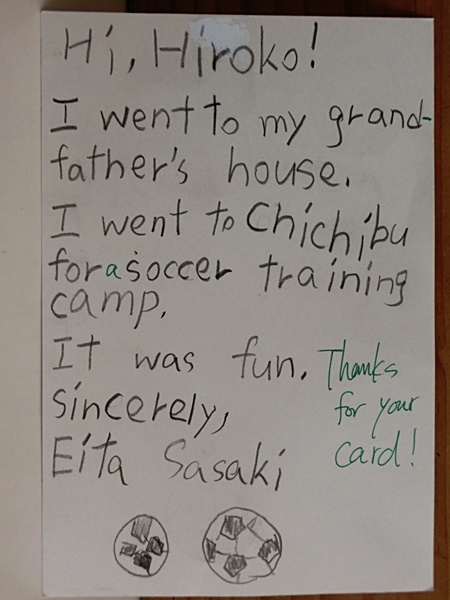 Hi, Hiroko!
I went to my grand-
father's house.
I went to Chichibu
for a soccer training
camp.
It was fun.
Sincerely,
Eita Sasaki
Thanks
for your
card!